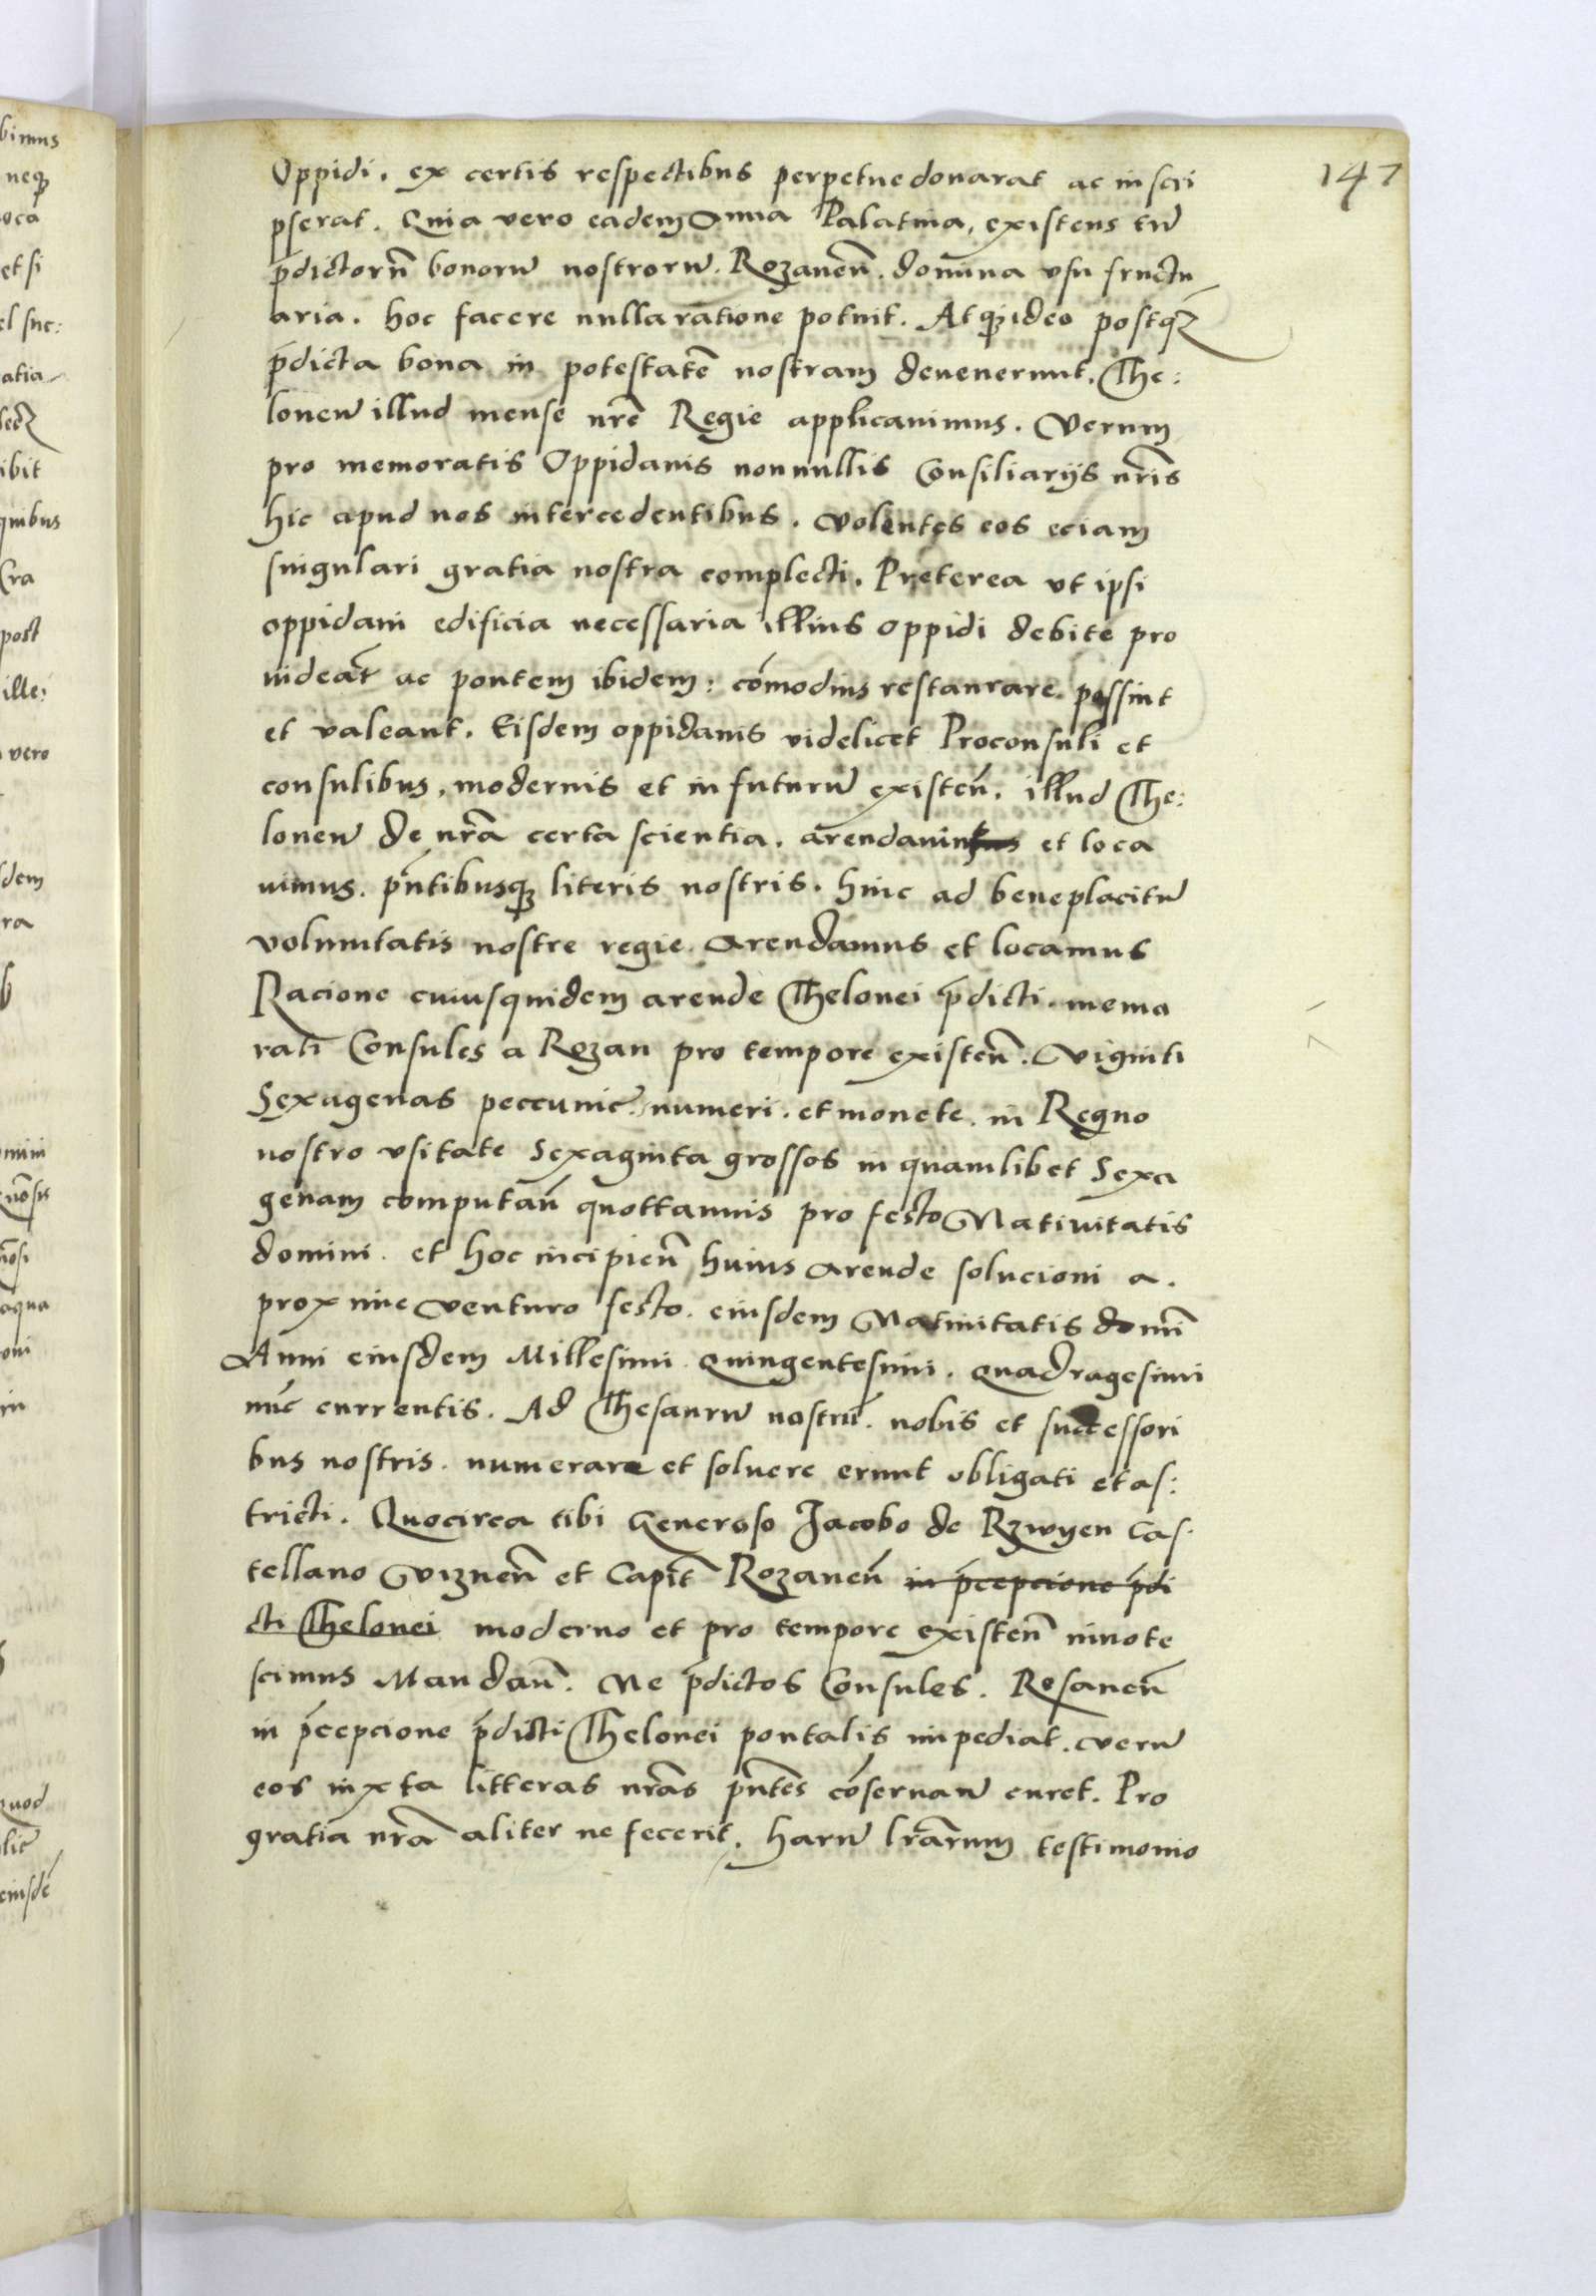 147
Oppidi. ex certis respectibus perpetue donarat ac inscri
pserat. Quia vero eadem Anna Palatina, existens tm̄
p̄dictorum̄ bonorum̄ nostrorum̄. Rozanen̄. domina vsu fructu
aria. hoc facere nulla ratione potuit. Atq3 ideo postq3
p̄dicta bona in potestatē nostram deuenerunt. The:
loneum̄ illud mense nr̄e Regie applicauimus. Verum
pro memoratis Oppidanis nonnullis Consiliarijs nr̄is
hic apud nos intercedentibus. volentes eos eciam
singulari gratia nostra complecti. Preterea vt ipsi
oppidani edificia necessaria illius oppidi debite pro
uideat̄ ac pontem ibidem: cōmodius restaurare possint
et valeant. Eisdem oppidanis videlicet Proconsuli et
consulibus, modernis et in futurum̄ existen̄. illud The:
loneum̄ de nr̄a certa scientia. arendauim et loca
uimus. pn̄tibusq3 literis nostris. hinc ad beneplacitum̄
voluntatis nostre regie arendamus et locamus
Racione cuiusquidem arende Thelonei p̄dicti. memo
rati Consules a Rozan pro tempore existen̄. Viginti
Sexagenas peccunie. numeri. et monete. in Regno
nostro vsitate Sexaginta grossos in quamlibet Sexa
genam computan̄ quottannis pro festo Natiuitatis
domini. et hoc incipien̄ huius arende solucioni a.
proxime venturo festo. eiusdem Natiuitatis domī
Anni eiusdem Millesimi Quingentesimi. quadragesimi
nūc currentis. Ad Thesaurum̄ nostrū. nobis et successori
bus nostris. numerare et soluere erunt obligati et as:
tricti. Quocirca tibi Generoso Jacobo de Rzwyen Cas:
tellano Viznen̄ et Capit̄ Rozanen̄ in p̄cepcione p̄di
cti Thelonei moderno et pro tempore existen̄ innote
scimus Mandan̄. Ne p̄dictos Consules. Rosanen̄
in p̄cepcione p̄dicti Thelonei pontalis impediat. verum̄
eos iuxta litteras nr̄as pn̄tes cōseruarum̄ curet. Pro
gratia nr̄a aliter ne fecerit. harum̄ lr̄arum testimonio